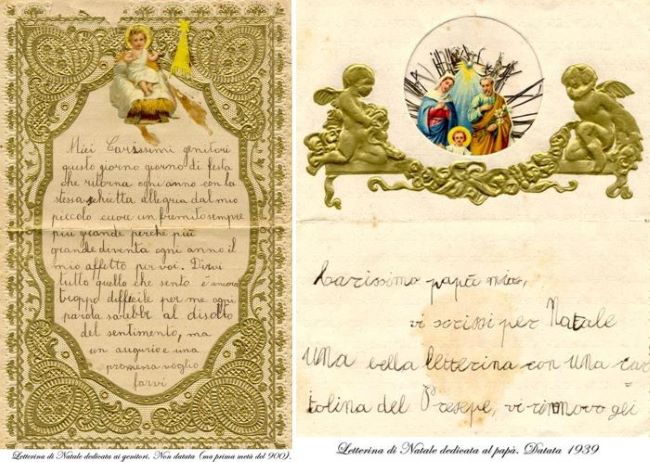 Miei Carissimi genitori
questo giorno giorno di festa
che ritorna ogni anno con la
stessa schietta allegria dal mio
piccolo cuore un fremito sempre
piu grande perché più
grande diventa ogni anno il
mio affetto per voi. Dirvi
tutto quello che sento è ancora
troppo difficile per me ogni
parola sarebbe al disotto
del sentimento, ma
un augurio e una
promessa voglio
farvi
Letterina di Natale dedicata ai genitori. Non datata (ma prima metà del 900).
Carissimo papà mio,
vi scrissi per Natale
una bella letterina con una car
tolina del Presepe, vi rinnovo gli
Letterina di Natale dedicata al papà. Datata 1939